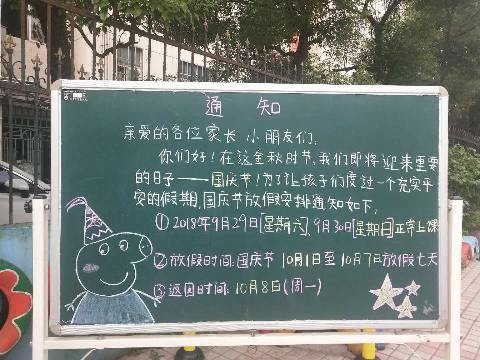 通知
亲爱的各位家长 小朋友们:
你们好!在这金秋时节,我们即将迎来重要
的日子——国庆节!为了让孩子们度过一个充实平
安的假期,国庆节放假安排通知如下:
①2018年9月29日[星期六],9月30日[星期日]正常上课
②放假时间:国庆节10月1日至10月7日放假七天
③返园时间:10月8日(周一)